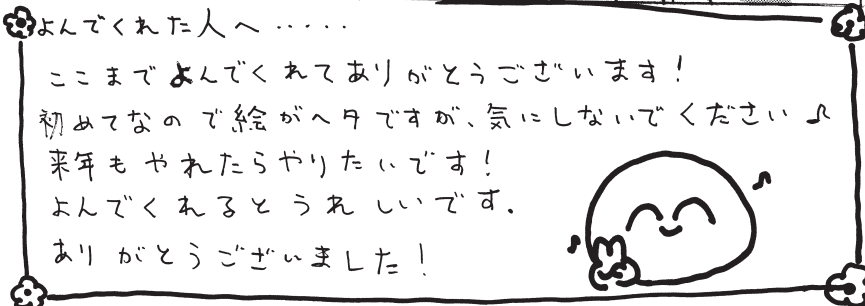 よんでくれた人へ‥‥‥
ここまでよんでくれてありがとうございます!
初めてなので絵がヘタですが、気にしないでください♪
来年もやれたらやりたいです!
よんでくれるとうれしいです.
ありがとうございました!